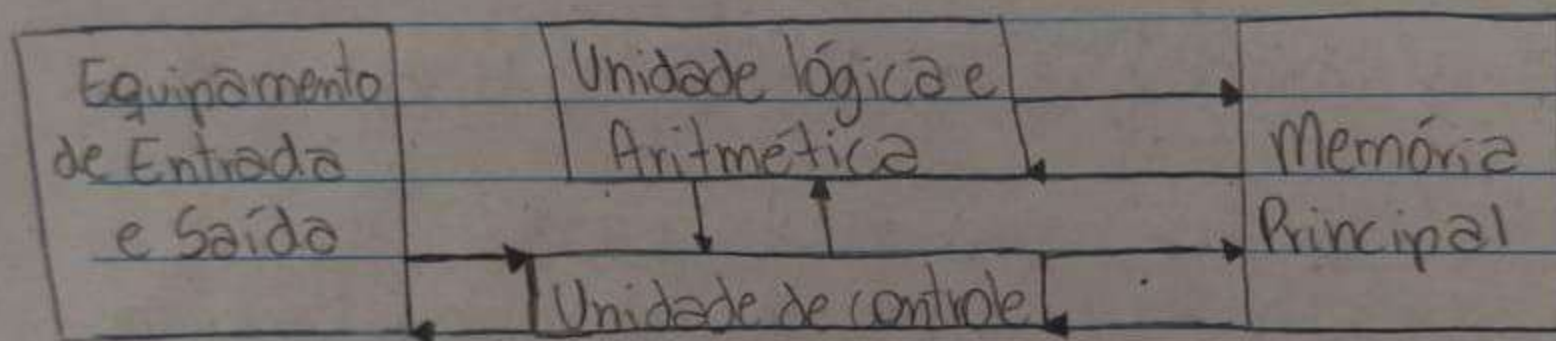 Equipamento
de Entrada
e Saída
Unidade lógica e
Aritmética
Unidade de controle
Memória
Principal